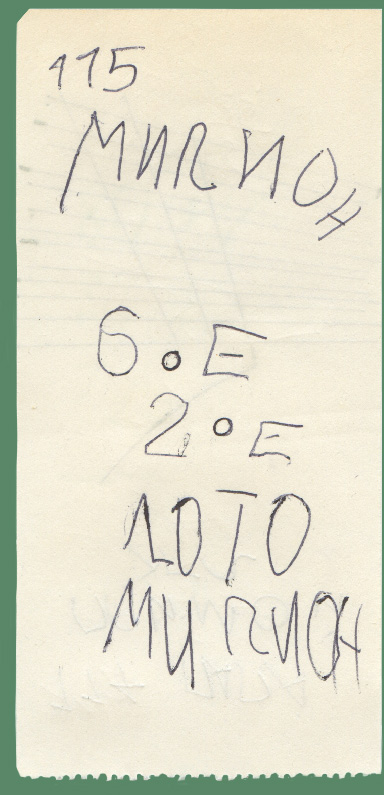 115
МИЛИОН
6.Е
2.Е
ЛОТО
МИЛИОН